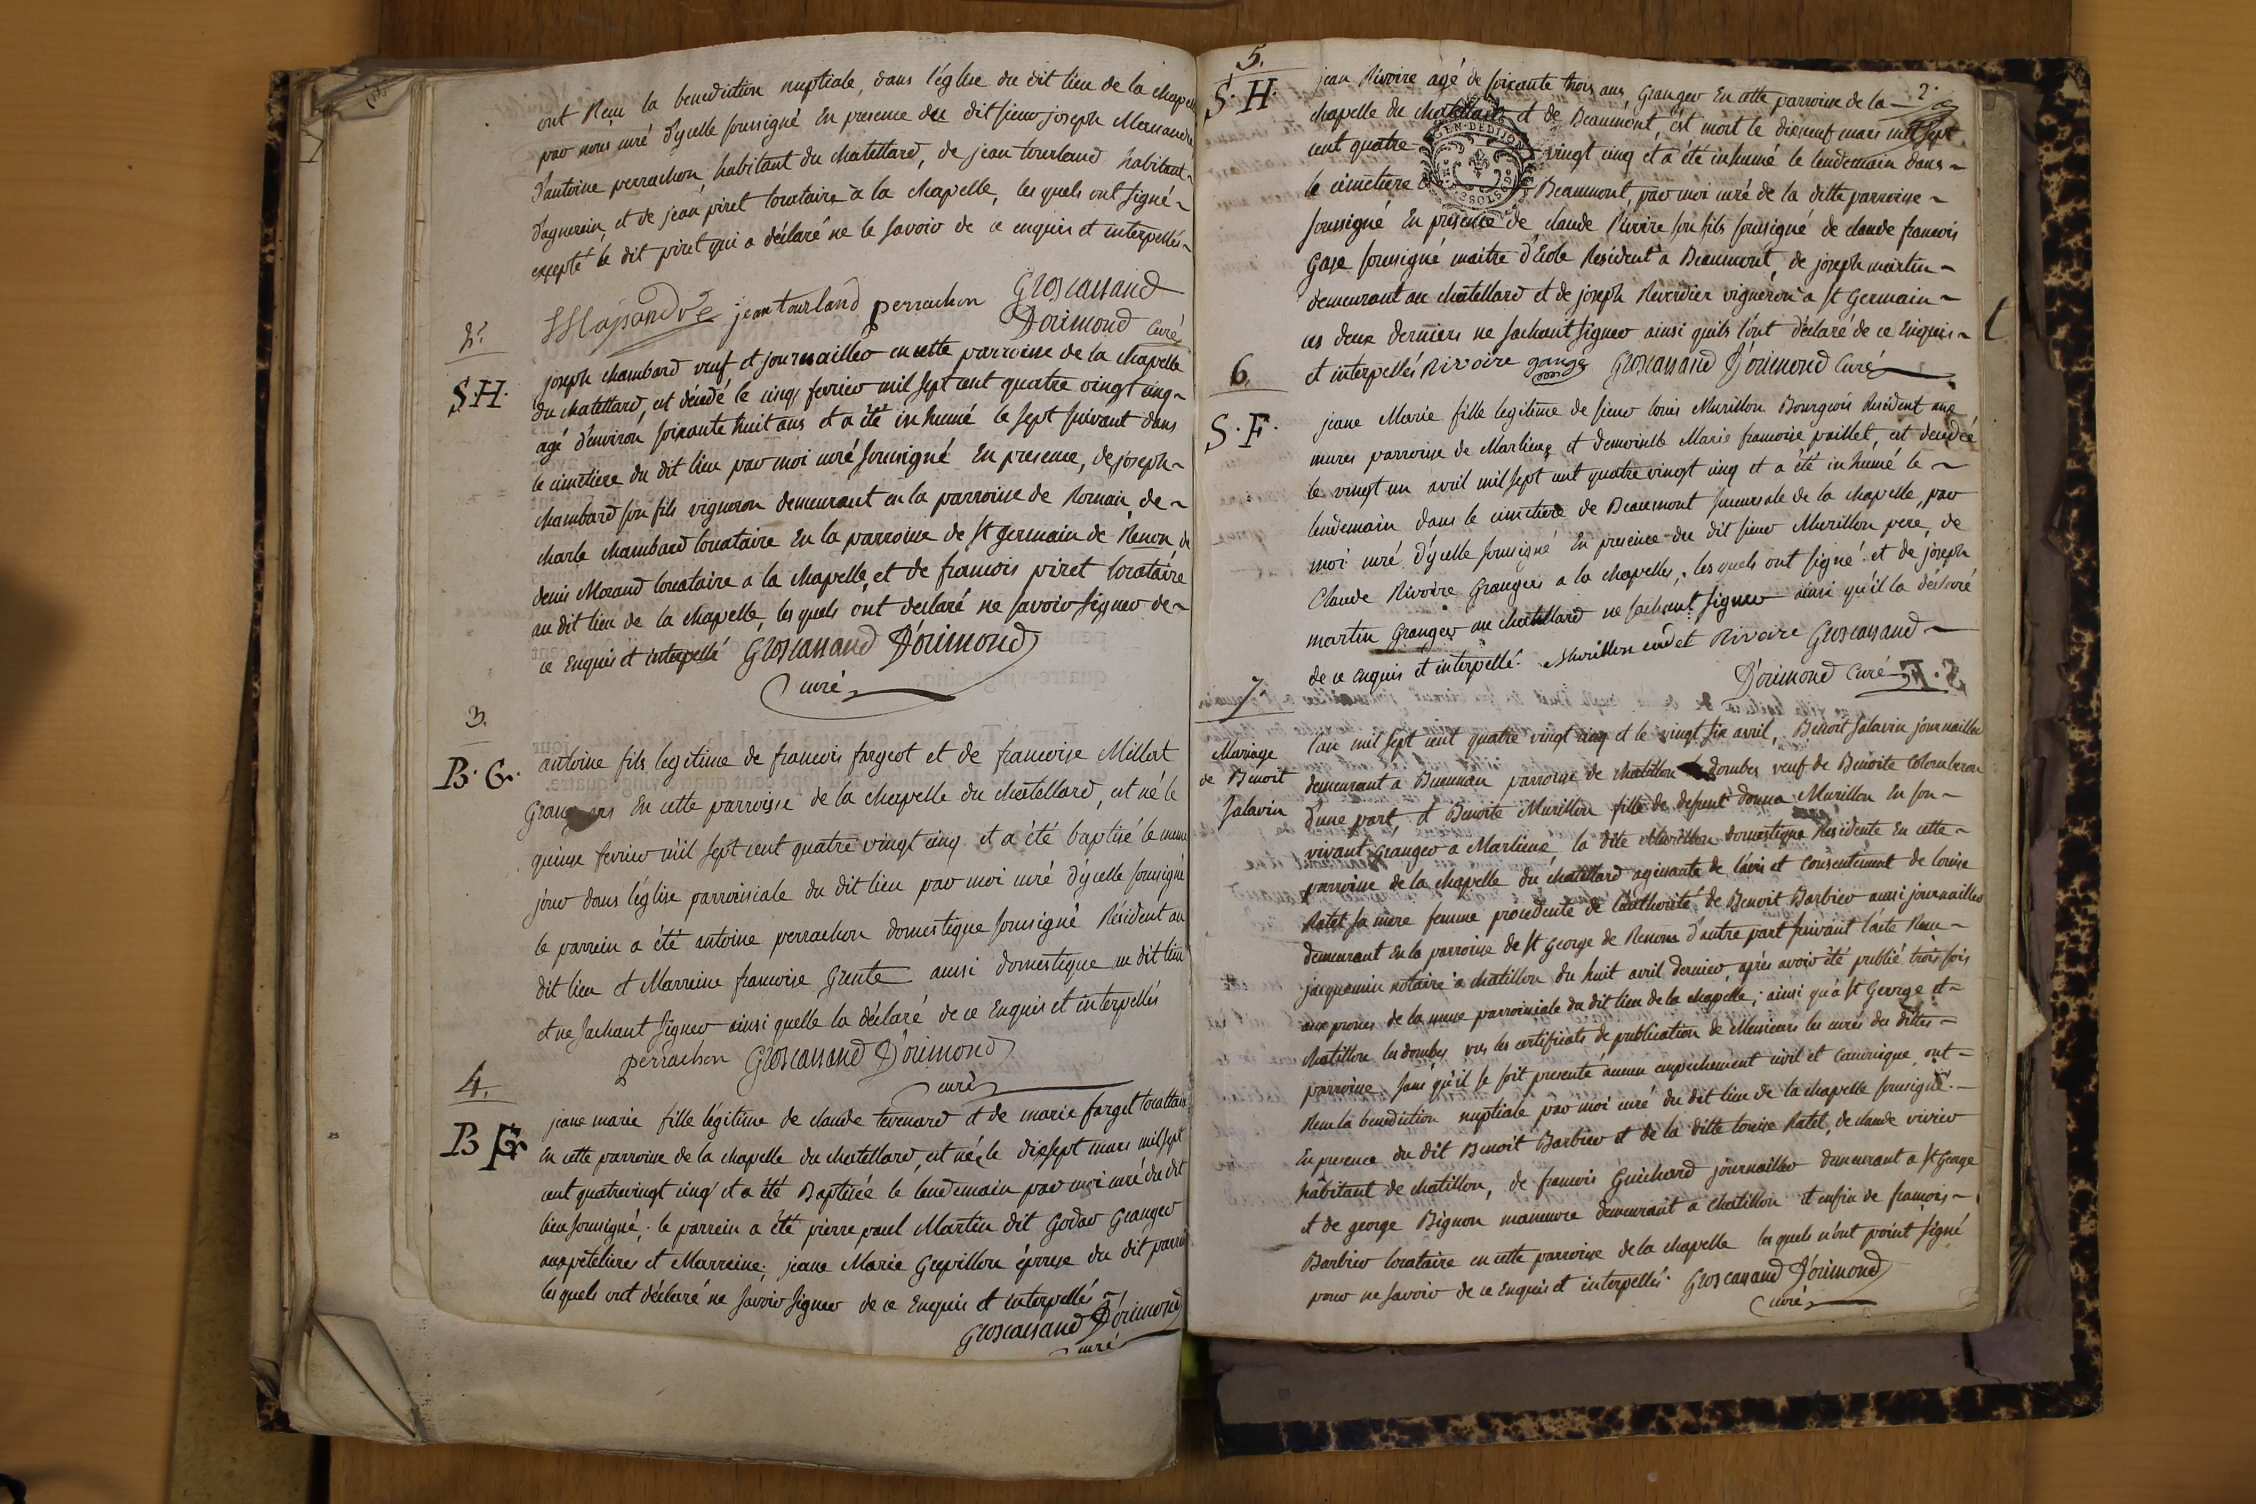 ont Reçu la benediction nuptiale, dans l'église du dit lieu de la chapelle
par nous curé d'ycelle soussigné En presence du dit sieur joseph
d'antoine perrachon, habitant du chatellard, de jean tourland habitant
et de jean piret locataire a la chapelle, les quels ont signé
excepté le dit piret qui a déclaré ne le savoir de ce enquis et interpellés
jean tourland perrachon Groscassand
D'orimond Curé
2.
S.H.
joseph chambard veuf et journaillier en cette parroisse de la chapelle
du chatellard, est décédé le cinq fevrier mil sept cent quatre vingt cinq
agé d'environ soixante huit ans et a été inhumé le sept suivant dans
le cimetiere du dit lieu par moi curé soussigné En presence, de joseph
chambard son fils vigneron demeurant en la parroisse de Romain, de
charle chambard locataire En la parroisse de st germain de Renon de
denis Morand locataire a la chapelle, et de francois piret locataire
au dit lieu de la chapelle, les quels ont declaré ne savoir signer de
ce Enquis et interpellé Groscassand D'orimond
curé
3.
B.G.
antoine fils legitime de francois fargeot et de francoise Millet
Grangers En cette parroisse de la chapelle du chatellard, est né le
quinze fevrier mil sept cent quatre vingt cinq et a été baptisé le meme
jour dans l'église parroissiale du dit lieu par moi curé d'ycelle soussigné
le parrein a été antoine perrachon domestique soussigné Résident au
dit lieu et Marreine francoise Grente aussi domestique au dit lieu
et ne sachant signer ainsi quelle la déclaré de ce Enquis et interpellés
perrachon Groscassand D'orimond
curé
4.
B F
jeane marie fille légitime de claude tevenard et de marie farget locattaires
En cette parroisse de la chapelle du chatellard, est née le dixsept mars mil sept
cent quatrevingt cinq et a été Baptisée le lendemain par moi curé du dit
lieu soussigné; le parrein a été pierre paul Martin dit Godar Granger
et Marreine, jeane Marie Grepillon épouse du dit parrein
les quels ont déclaré ne savoir signer de ce Enquis et interpellés
Groscassand D'orimond
curé
2.
5.
S.H.
jean Rivoire agé de soixante trois ans, Granger En cette parroisse de la
chapelle du chatellard et de Beaumont, est mort le dixneuf mars mil sept
cent quatre vingt cinq et a été inhumé le lendemain dans
le cimetiere de Beaumont, par moi curé de la ditte parroisse
GEN. DE DIJON
soussigné En presence de claude Rivoire son fils soussigné de claude francois
Gase soussigné maitre d'Ecole Resident a Beaumont, de joseph martin
demeurant au chatellard et de joseph Reverdier vigneron a st Germain
ces deux derniers ne sachant signer ainsi quils l'ont déclaré de ce Enquis
et interpellés Rivoire Groscassand D'orimond Curé
6.
S.F.
jeane Marie fille legitime de sieur louis Murillon Bourgeois Resident aux
mures parroisse de Marlieux et demoiselle Marie francoise paillet, est decedée
le vingt un avril mil sept cent quatre vingt cinq et a été inhumé le
lendemain dans le cimetiere de Beaumont succursale de la chapelle, par
moi curé d'ycelle soussigné En presence du dit sieur Murillon pere, de
Claude Rivoire Grangers a la chapelles, les quels ont signé et de joseph
martin Granger au chatellard ne sachant signer ainsi qu'il la déclaré
de ce enquis et interpellé. Murillon et Rivoire Groscassand
D'orimond Curé
7
Mariage
de Benoit
Salavin
l'an mil sept cent quatre vingt cinq et le vingt six avril, Benoit Salavin journaillier
demeurant a Buennan parroisse de chatillon les dombes veuf de Benoite Colomberon
d'une part, et Benoite Murillon fille de defunt donna Murillon En son
vivant Granger a Marlieux la dite Murillon domestique Residente En cette
parroisse de la chapelle du chatellard agissante de l'avis et consentement de louise
Ratet sa mere femme procedente de l'authorité de Benoit Barbier aussi journaillier
demeurant En la parroisse de st George de Renom d'autre part suivant l'acte Recu
jacquemin notaire a chatillon du huit avril dernier, après avoir été publié trois fois
aux prones de la messe parroissiale du dit lieu de la chapelle; ainsi qu'a st George et
chatillon les dombes vus les certificats de publication de Messieurs les curés des dittes
parroisses, sans qu'il se soit presenté aucun empechement civil et canonique ont
Recu la benediction nuptiale par moi curé du dit lieu de la chapelle soussigné.
En presence du dit Benoit Barbier et de la ditte louise Ratet, de claude vivier
habitant de chatillon, de francois Guichard journaillier demeurant a st George
et de george Bignon manœuvre demeurant a chatillon et enfin de francois
Barbier locataire en cette parroisse de la chapelle les quels n'ont point signé
pour ne savoir de ce Enquis et interpellés. Groscassand D'orimond
curé